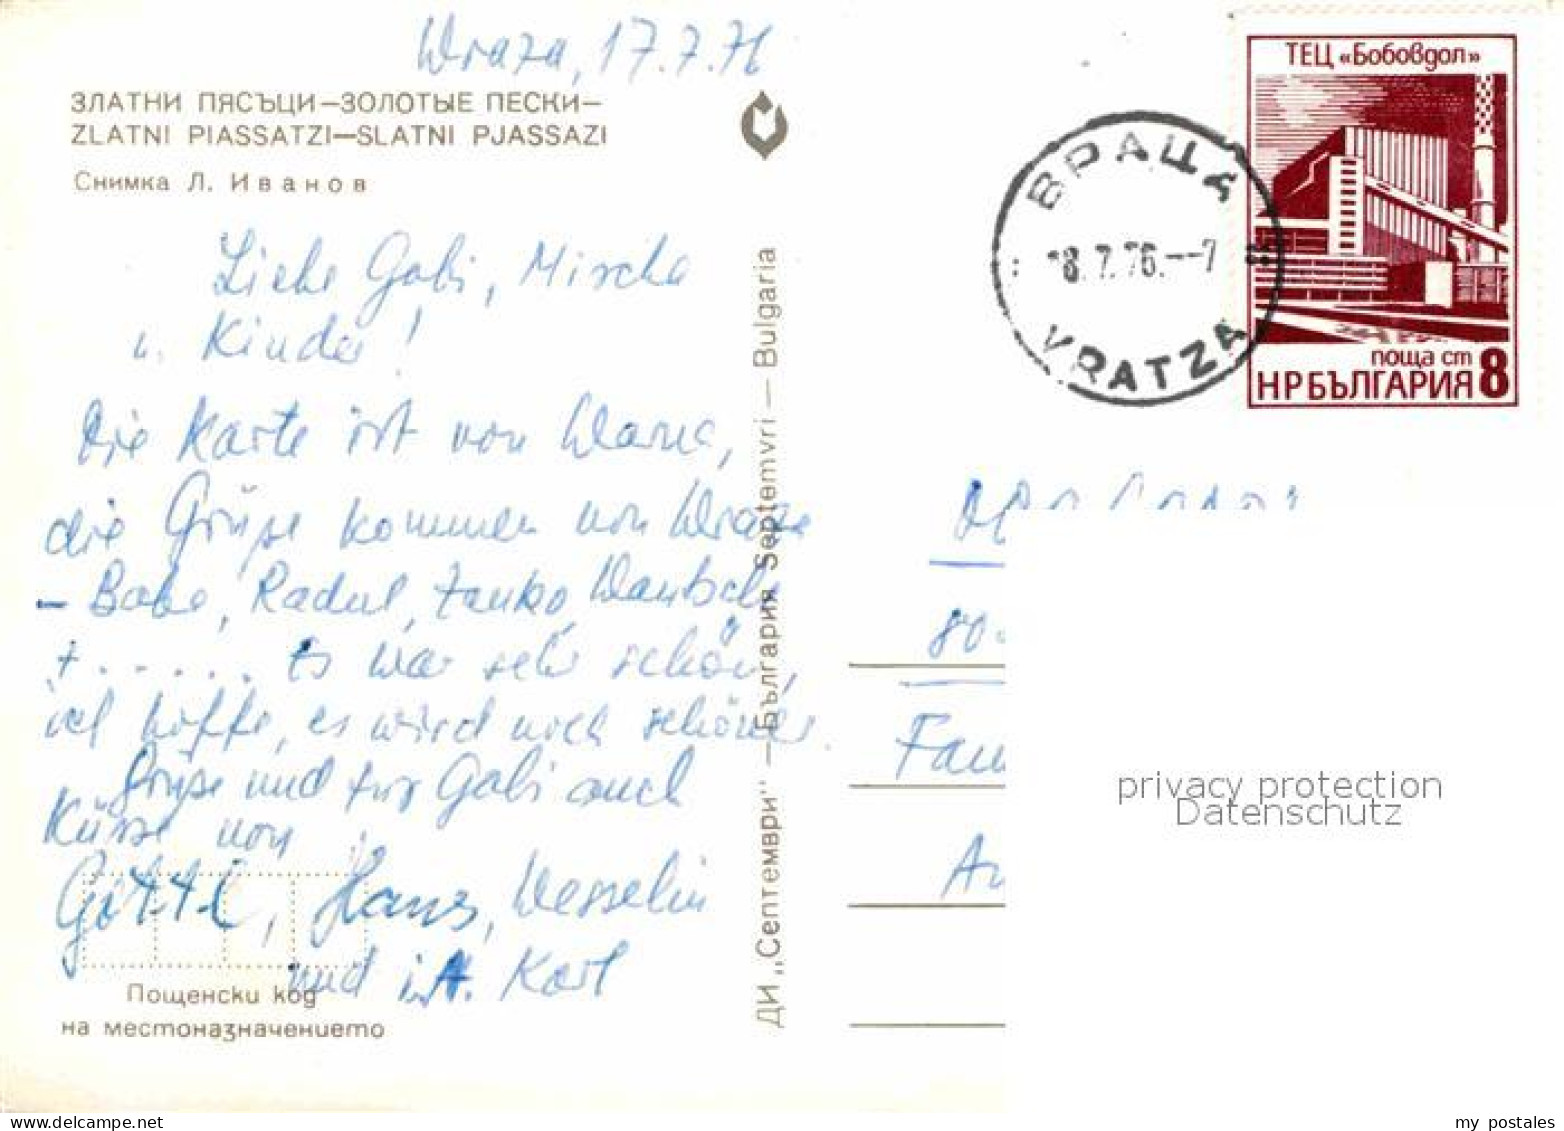 Wraza, 17.7.76
ЗЛАТНИ ПЯСЪЦИ—ЗОЛОТЫЕ ПЕСКИ—
ZLATNI PIASSATZI—SLATNI PJASSAZI
Снимка Л. Иванов
Liebe Gabi, Mischa
u. Kinder!
Die Karte ist von Warna,
die Grüße kommen von Wraza
– Baba, Radul, Zanko, Wantsche
+ . . . . . . Es war sehr schön,
ich hoffe, es wird noch schöner.
Grüße und für Gabi auch
Küsse von
Gittel, Hans, Wesselin
und i.A. Karl
Пощенски код
на местоназначението
ДИ „Септември" — България Septemvri — Bulgaria
ТЕЦ «Бобовдол»
поща ст 8
НРБЪЛГАРИЯ
ВРАЦА
8.7.76.--7
VRATZA
80
Fam
privacy protection
Datenschutz
my postales